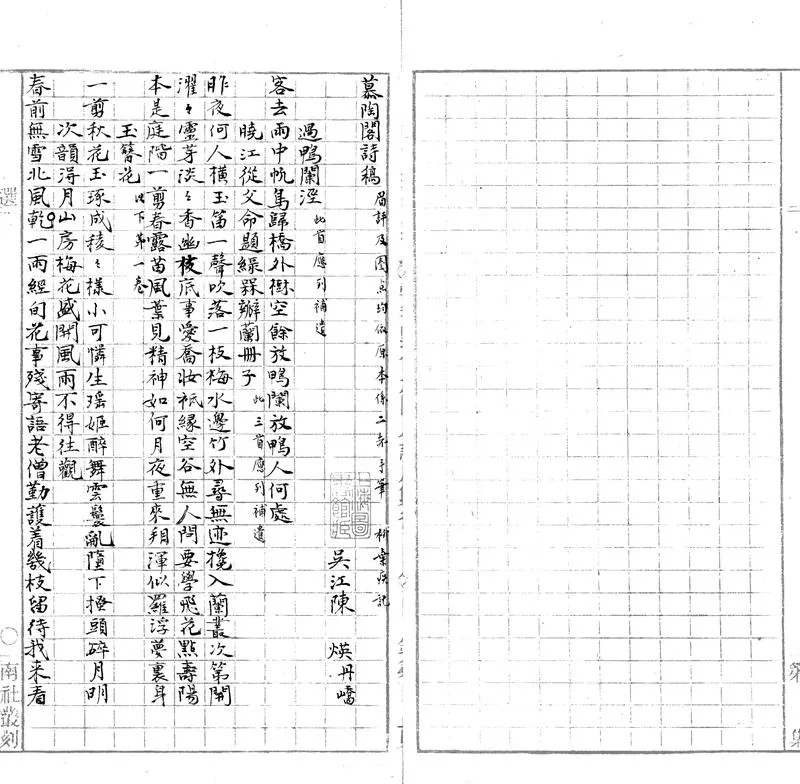 慕陶閣詩稿 眉評及圈点均依原本係二弟手筆 柳棄疾記
吳江陳 煐丹嶠
過鴨闌涇 此首應列補遺
客去雨中忱鳥歸橋外樹空餘放鴨闌放鴨人何處
曉江從父命題綠槑瓣蘭冊子 此三首應列補遺
昨夜何人橫玉笛一聲吹落一枝梅水邊竹外尋無迹攙入蘭叢次第開
濯々靈芽淡々香幽枝底事愛喬妝祇緣空谷無人問要學飛花點壽陽
本是庭階一剪春露苗風葉見精神如何月夜重來翔渾似羅浮夢裏身
玉簪花 以下第一卷
一剪秋花玉琢成稜々樣小可憐生瑶姬醉舞雲鬟亂墮下搔頭碎月明
次韻得月山房梅花盛開風雨不得往觀
春前無雪北風乾一雨經旬花事殘寄語老僧勤護着幾枝留待我来看
選
南社叢刻
第 集